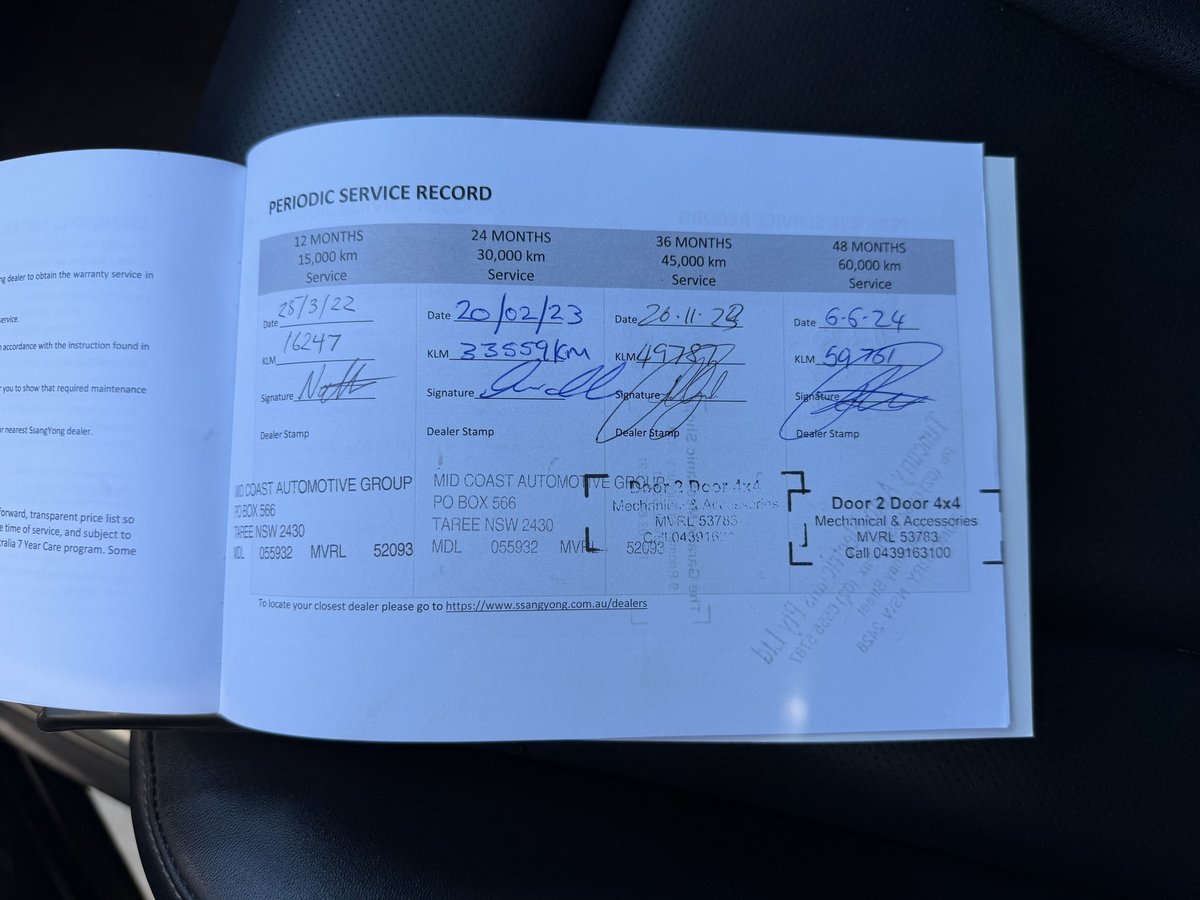 ng dealer to obtain the warranty service in
service.
accordance with the instruction found in
you to show that required maintenance
nearest SsangYong dealer.
forward, transparent price list so
time of service, and subject to
tralia 7 Year Care program. Some
PERIODIC SERVICE RECORD
12 MONTHS
15,000 km
Service
Date 25/3/22
KLM 16247
Signature
Dealer Stamp
MID COAST AUTOMOTIVE GROUP
PO BOX 566
TAREE NSW 2430
MDL 055932 MVRL 52093
24 MONTHS
30,000 km
Service
Date 20/02/23
KLM 33559KM
Signature
Dealer Stamp
MID COAST AUTOMOTIVE GROUP
PO BOX 566
TAREE NSW 2430
MDL 055932 MVRL 52093
36 MONTHS
45,000 km
Service
Date 26.11.23
KLM 49787
Signature
Dealer Stamp
Door 2 Door 4x4
Mechanical & Accessories
MVRL 53783
Call 0439163
48 MONTHS
60,000 km
Service
Date 6-6-24
KLM 59761
Signature
Dealer Stamp
Door 2 Door 4x4
Mechanical & Accessories
MVRL 53783
Call 0439163100
To locate your closest dealer please go to https://www.ssangyong.com.au/dealers